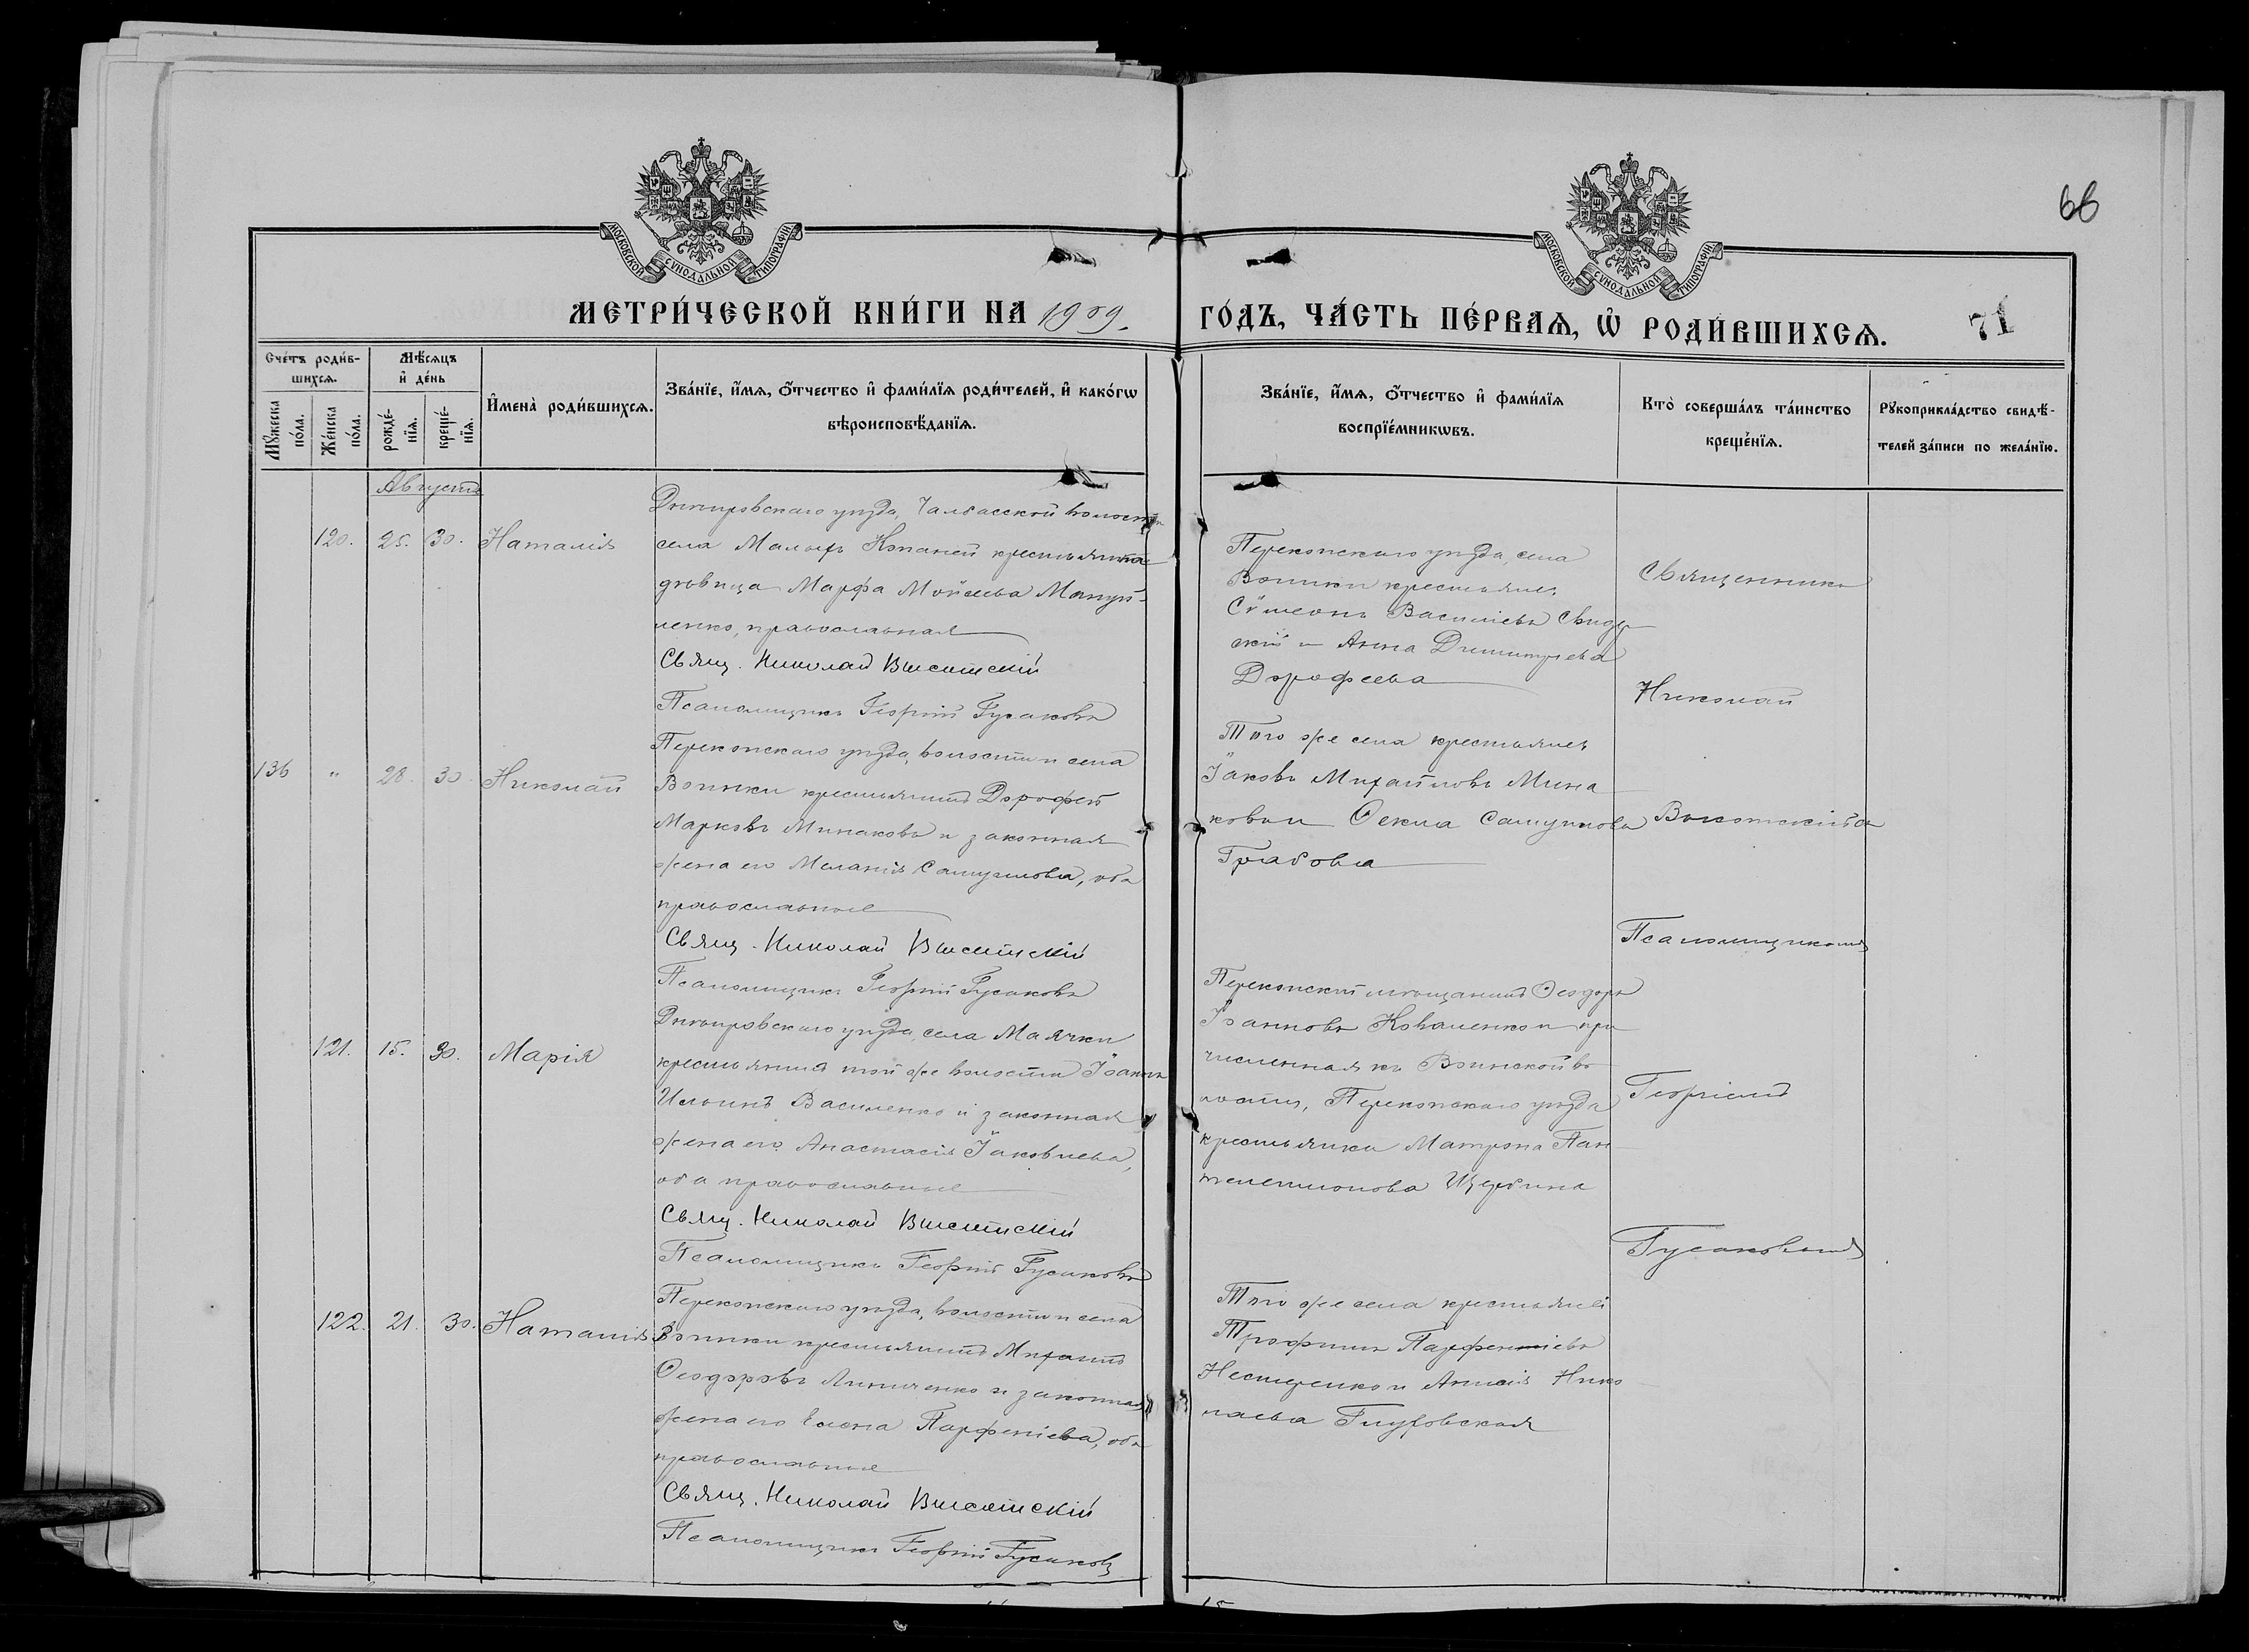 66
МОСКОВСКОЙ СѴНОДАЛЬНОЙ ТИПОГРАФІИ
МОСКОВСКОЙ СѴНОДАЛЬНОЙ ТИПОГРАФІИ
МЕТРИ́ЧЕСКОЙ КНИ́ГИ НА 1909.
ГО́ДЪ, ЧА́СТЬ ПЕ́РВАѦ, Ѡ҆ РОДИ́ВШИХСѦ.
71
Сче́тъ роди́в-
шихсѧ.
Мѣ́сѧцъ
и҆ де́нь
Мꙋ́жеска
по́ла.
Же́нска
по́ла.
рожде́-
нїѧ.
креще́-
нїѧ.
И҆мена̀ роди́вшихсѧ.
Зва́нїе, и҆́мѧ, ѻ҆́тчество и҆ фами́лїѧ роди́телей, и҆ како́гѡ
вѣроисповѣ́данїѧ.
Зва́нїе, и҆́мѧ, ѻ҆́тчество и҆ фами́лїѧ
воспрїе́мникѡвъ.
Кто̀ соверша́лъ та́инство
креще́нїѧ.
Рꙋкоприкла́дство свидѣ́-
телей за́писи по жела́нїю.
Августъ
120. 25. 30. Наталія
Днѣпровскаго уѣзда, Чалбасской волости
села Малыхъ Копаней крестьянка
дѣвица Марфа Мойсеева Мануй-
ленко, православная
Свящ. Николай Высотскій
Псаломщикъ Георгій Гусаковъ
Перекопскаго уѣзда, села
Воинки крестьяне
Сѵмеонъ Василіевъ Свид
скій и Анна Димитріева
Дорофеева
Священникъ
Николай
Высотскій съ
Псаломщикомъ
Георгіемъ
Гусаковымъ
136 " 28. 30. Николай
Перекопскаго уѣзда, волости и села
Воинки крестьянинъ Дорофей
Марковъ Минаковъ и законная
жена его Меланія Самуилова, оба
православные
Свящ. Николай Высотскій
Псаломщикъ Георгій Гусаковъ
Того же села крестьяне
Іаковъ Михайловъ Мина
ковъ и Ѳекла Самуилова
Грабова
121. 15. 30. Марія
Днѣпровскаго уѣзда, села Маячки
крестьянинъ той же волости Іоаннъ
Ильинъ Василенко и законная
жена его Анастасія Іаковлева,
оба православные
Свящ. Николай Высотскій
Псаломщикъ Георгій Гусаковъ
Перекопскій мѣщанинъ Ѳеодоръ
Іоанновъ Коваленко и при
численная къ Воинской во
лости, Перекопскаго уѣзда
крестьянка Матрона Пан
телеимонова Щербина
122. 21. 30. Наталія
Перекопскаго уѣзда, волости и села
Воинки крестьянинъ Михаилъ
Ѳеодоровъ Линиченко и законная
жена его Елена Парѳеніева, оба
православные
Свящ. Николай Высотскій
Псаломщикъ Георгій Гусаковъ
Того же села крестьяне
Трофимъ Парфеніевъ
Нестеренко и Анисія Нико
лаева Глуховская